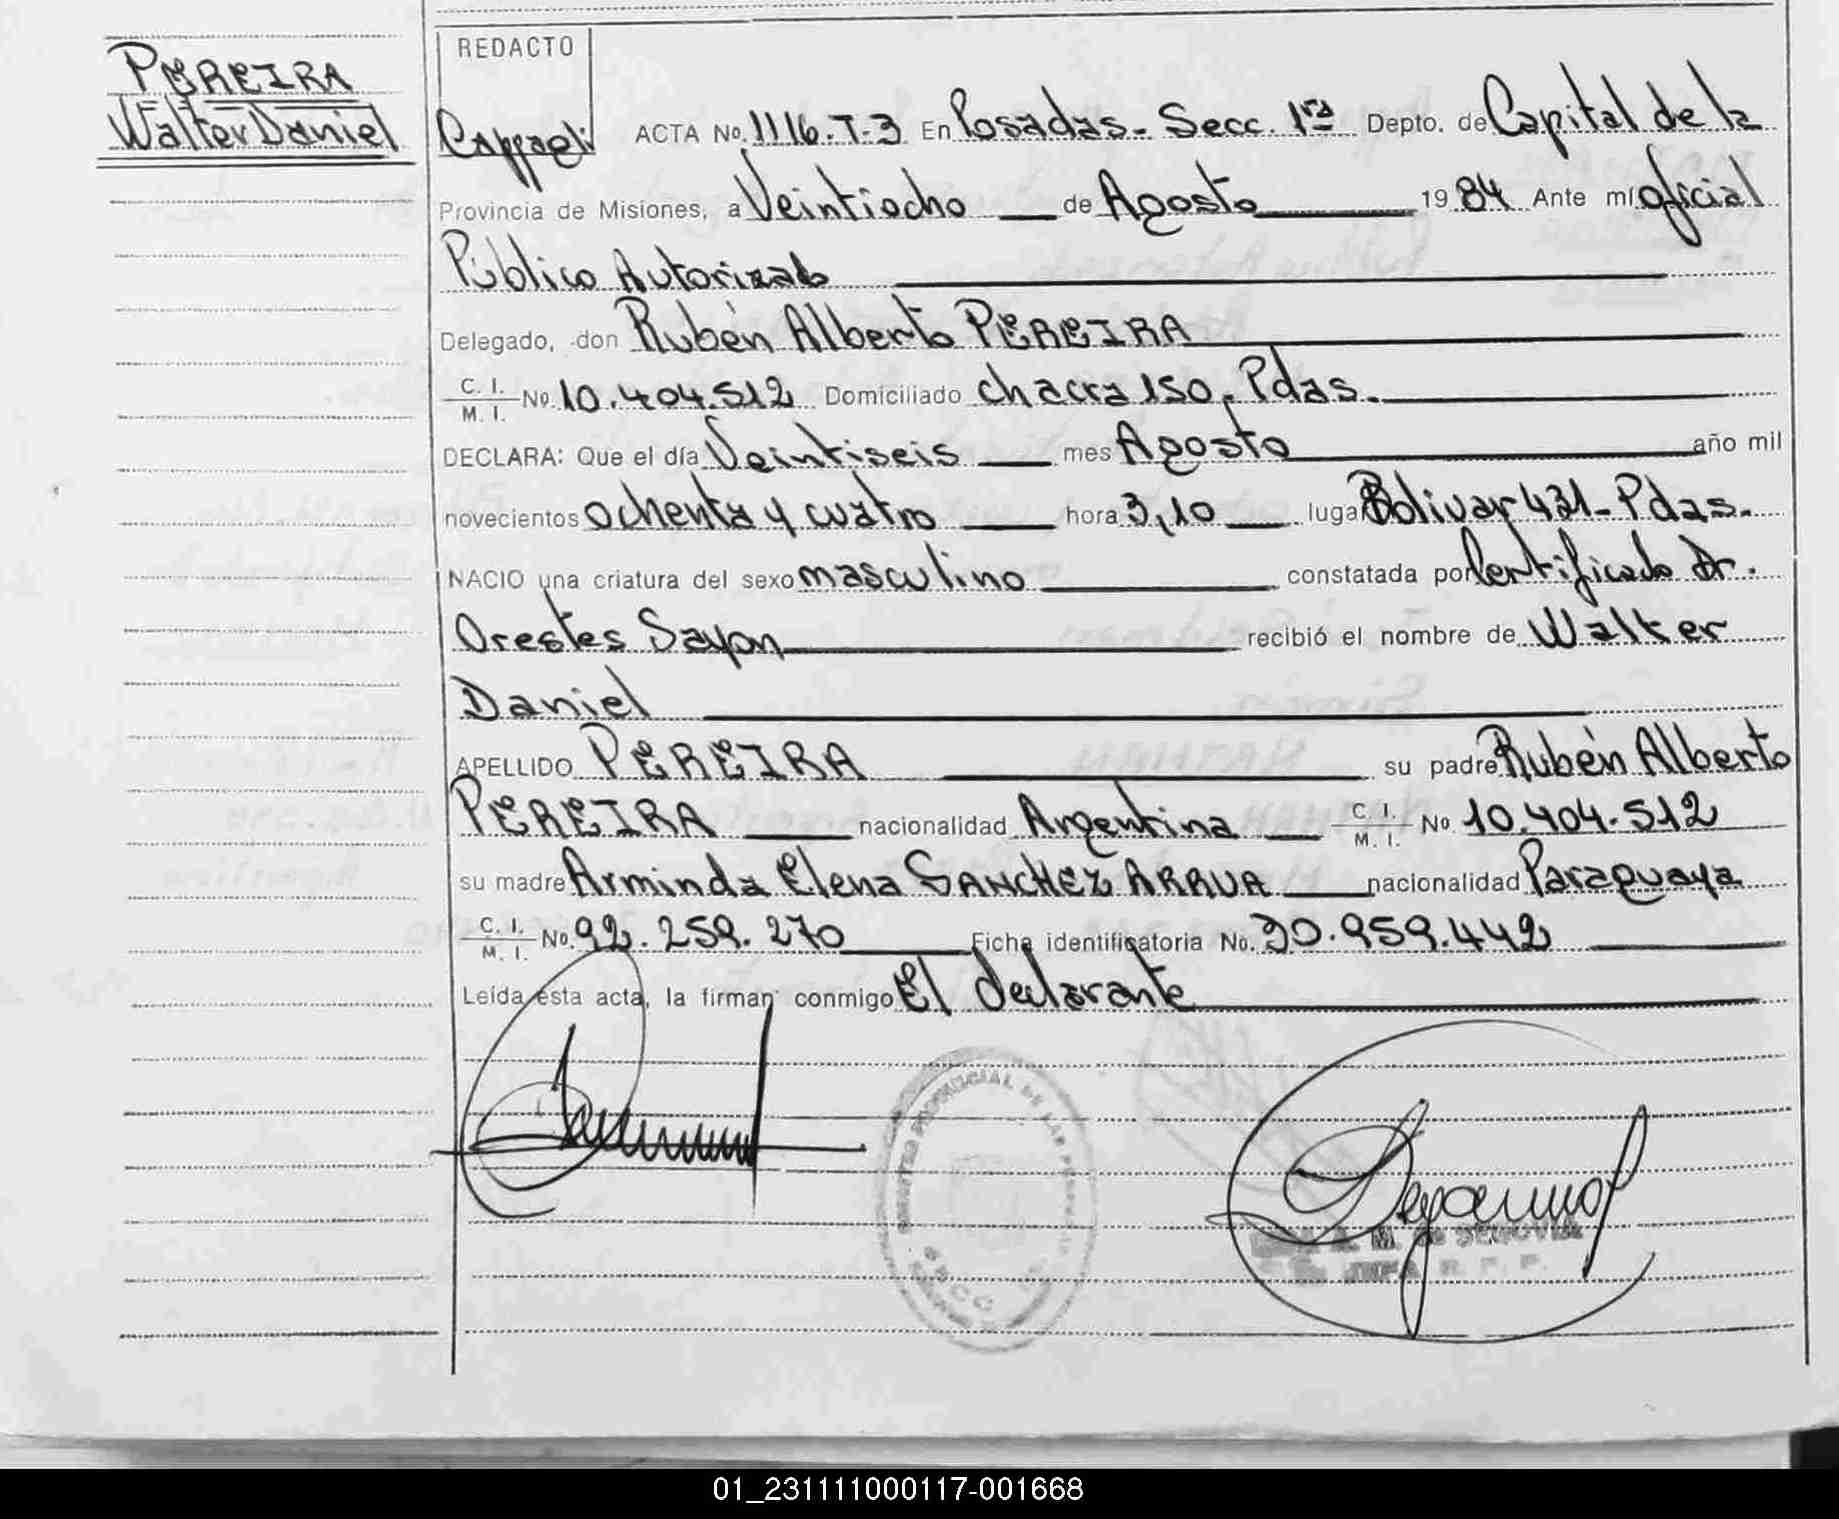 PEREIRA
Walter Daniel
REDACTO
Cappagli
ACTA No. 1116.T-3 En Posadas- Secc. 1ra Depto. de Capital de la
Provincia de Misiones, a Veintiocho de Agosto 1984 Ante mí oficial
Público Autorizado
Delegado, don Rubén Alberto PEREIRA
C. I. / M. I. No 10.404.512 Domiciliado chacra 150, Pdas.
DECLARA: Que el día Veintiseis mes Agosto año mil
novecientos ochenta y cuatro hora 3,10 lugar Bolivar 431- Pdas.
NACIO una criatura del sexo masculino constatada por Certificado Dr.
Orestes Sayon recibió el nombre de Walter
Daniel
APELLIDO PEREIRA su padre Rubén Alberto
PEREIRA nacionalidad Argentina C. I. / M. I. No 10.404.512
su madre Arminda Elena SANCHEZ ARRUA nacionalidad Paraguaya
C. I. / M. I. No. 92.259.270 Ficha identificatoria No. 30.959.442
Leída esta acta, la firman conmigo El declarante
DE SEGOVIA
JEFA R. P. P.
01_231111000117-001668